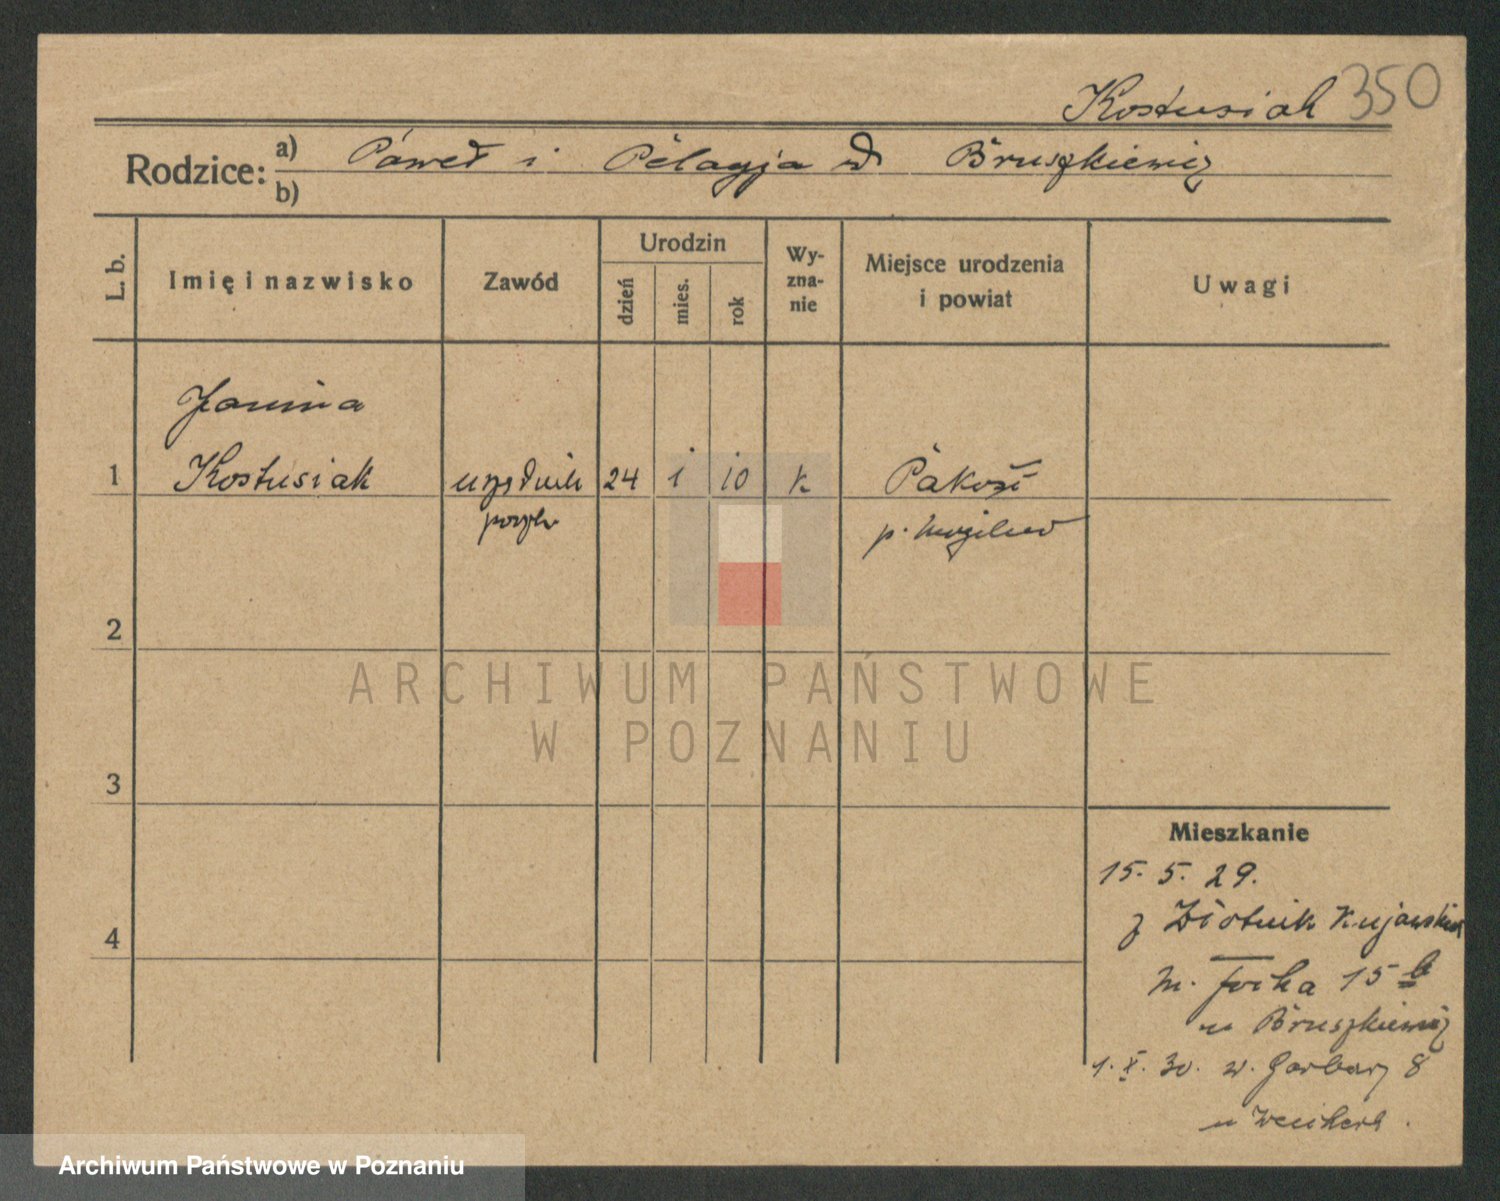 Kostusiak 350
Rodzice: a) Paweł i Pelagja d Bruszkiewicz
b)
L. b.
Imię i nazwisko
Zawód
Urodzin
dzień
mies.
rok
Wy-
zna-
nie
Miejsce urodzenia
i powiat
Uwagi
Janina
1 Kostusiak 24 1 10 k Pakość
p. Mogilno
2
ARCHIWUM PAŃSTWOWE
W POZNANIU
3
Mieszkanie
15. 5. 29.
z Złotnik Kujawskich
4
m. Focha 15 b
u Bruszkiewicz
1. X. 30. w. Garbary 8
u
Archiwum Państwowe w Poznaniu